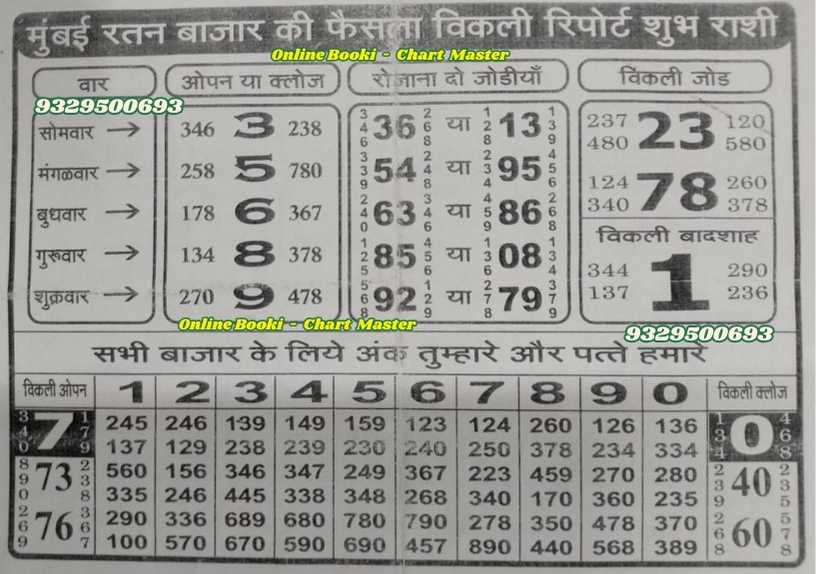 मुंबई रतन बाजार की फैसला विकली रिपोर्ट शुभ राशी
Online Booki - Chart Master
वार ओपन या क्लोज रोजाना दो जोडीयाँ विकली जोड
9329500693
सोमवार → 346 3 238 346 36 268 या 128 13 139
मंगळवार → 258 5 780 339 54 248 या 234 95 456
बुधवार → 178 6 367 240 63 346 या 459 86 268
गुरूवार → 134 8 378 125 85 456 या 136 08 134
शुक्रवार → 270 9 478 568 92 129 या 278 79 379
237 480 23 120 580
124 340 78 260 378
विकली बादशाह
344 137 1 290 236
Online Booki - Chart Master
9329500693
सभी बाजार के लिये अंक तुम्हारे और पत्ते हमारे
विकली ओपन 1 2 3 4 5 6 7 8 9 0 विकली क्लोज
340 7 179 134 0 468
245 246 139 149 159 123 124 260 126 136
137 129 238 239 230 240 250 378 234 334
890 73 238 239 40 235
560 156 346 347 249 367 223 459 270 280
335 246 445 338 348 268 340 170 360 235
269 76 367 268 60 578
290 336 689 680 780 790 278 350 478 370
100 570 670 590 690 457 890 440 568 389